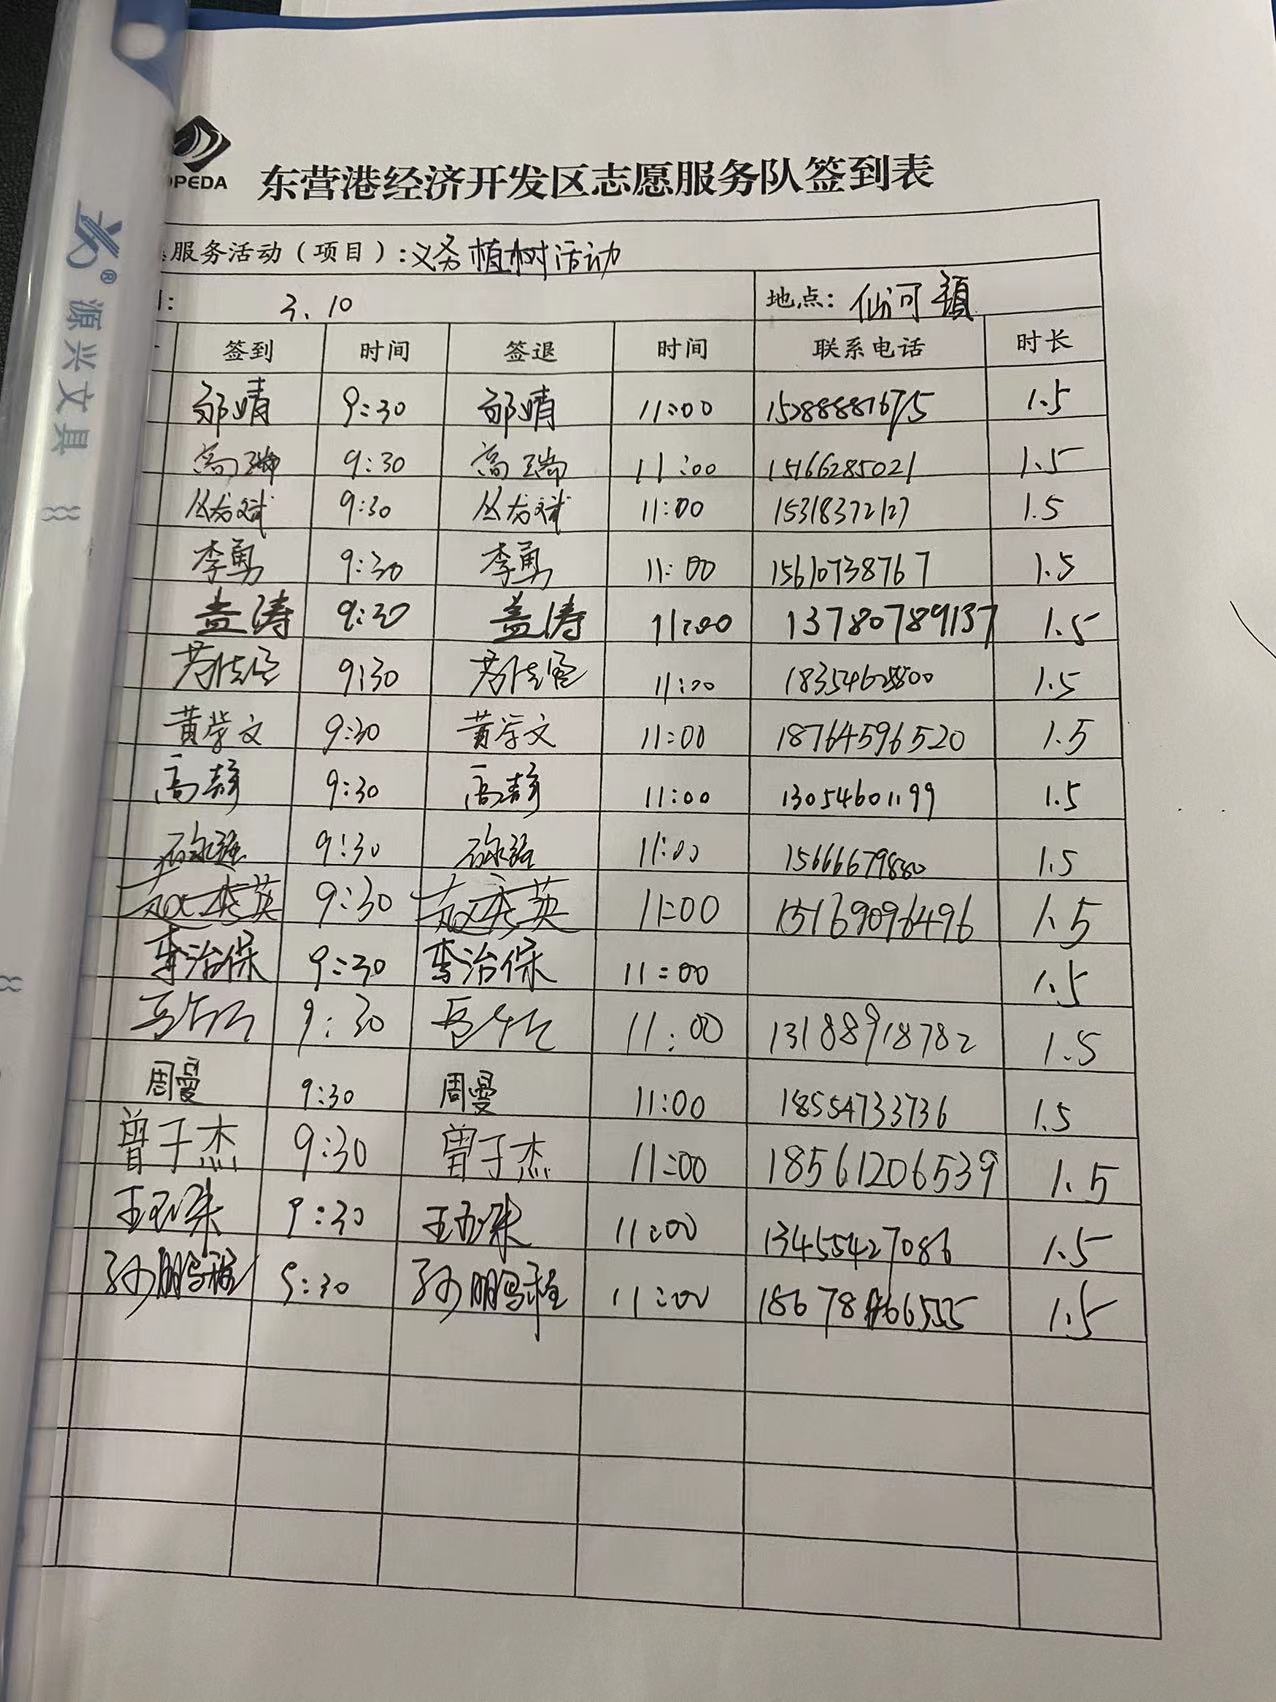 OPEDA
东营港经济开发区志愿服务队签到表
服务活动（项目）：义务植树活动
: 3.10 地点：仙河镇
签到 时间 签退 时间 联系电话 时长
邵婧 9:30 邵婧 11:00 1.5
高瑞 9:30 高瑞 11:00 15166285021 1.5
丛龙斌 9:30 丛龙斌 11:00 15318372127 1.5
李勇 9:30 李勇 11:00 15610738767 1.5
盖涛 9:30 盖涛 11:00 13780789137 1.5
9:30 11:00 1.5
黄学文 9:30 黄学文 11:00 18764596520 1.5
高静 9:30 高静 11:00 13054601199 1.5
石永强 9:30 石永强 11:00 15666679880 1.5
赵秀英 9:30 赵秀英 11:00 15169096496 1.5
李治保 9:30 李治保 11:00 1.5
9:30 11:00 13188918782 1.5
周曼 9:30 周曼 11:00 18554733736 1.5
曾子杰 9:30 曾子杰 11:00 18561206539 1.5
王玉珠 9:30 王玉珠 11:00 13455427086 1.5
孙鹏程 9:30 孙鹏程 11:00 1.5
源兴文具